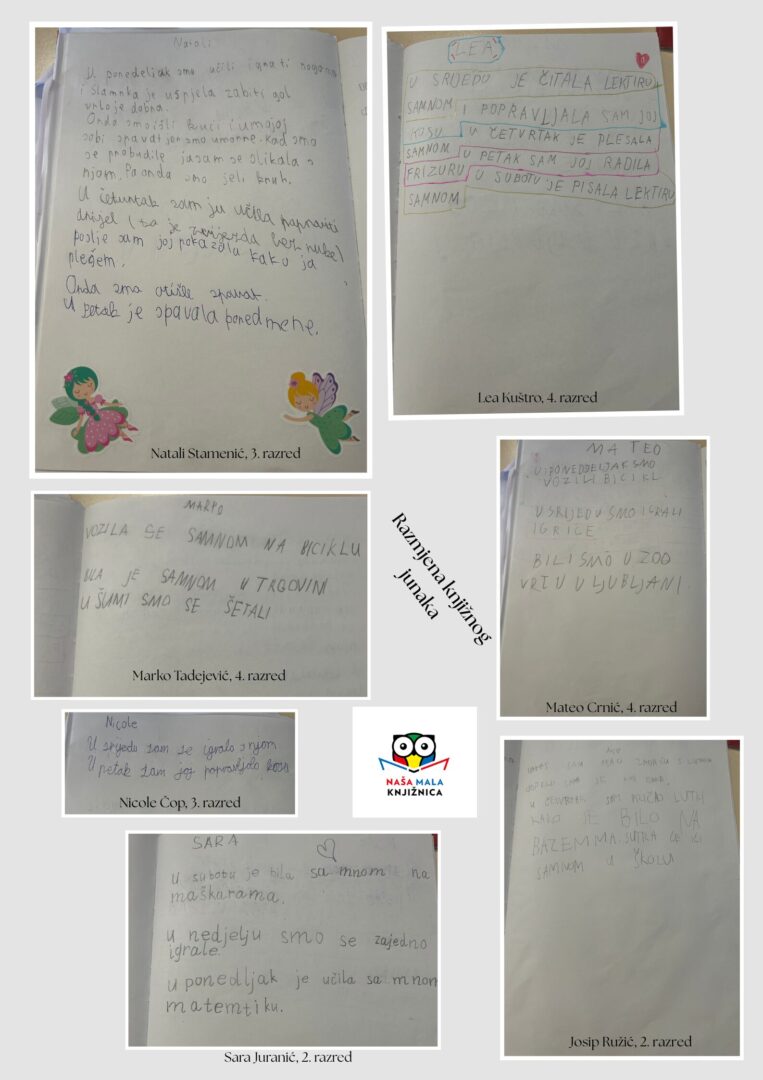 Natali
U ponedeljak smo učili igrati nogomet
i Slamnka je uspjela zabiti gol
vrlo je dobra.
Onda smo išli kući i u mojoj
sobi spavat jer smo umorne. Kad smo
se probudile ja sam se slikala s
njom. Pa onda smo jeli kruh.
U četvrtak sam ju učila napraviti
(to je zvijezda bez ruke)
poslje sam joj pokazala kako ja
plešem.
Onda smo otišle spavat.
U petak je spavala pored mene.
Natali Stamenić, 3. razred
LEA
U SRIJEDU JE ČITALA LEKTIRU
SAMNOM I POPRAVLJALA SAM JOJ
KOSU U ČETVRTAK JE PLESALA
SAMNOM U PETAK SAM JOJ RADILA
FRIZURU U SUBOTU JE PISALA LEKTIRU
SAMNOM
Lea Kuštro, 4. razred
MARKO
VOZILA SE SAMNOM NA BICIKLU
JE SAMNOM U TRGOVINI
U ŠUMI SMO SE ŠETALI
Marko Tadejević, 4. razred
Razmjena knjižnog
junaka
MATEO
U PONEDDELJAK SMO
VOZILI BICIKL
U SRIJEDU SMO IGRALI
IGRICE
BILI SMO U ZOO
VRTU U LJUBLJANI.
Mateo Crnić, 4. razred
Nicole
U srijedu sam se igrala s njom
U petak sam joj popravljala kosu
Nicole Čop, 3. razred
NAŠA MALA
KNJIŽNICA
SARA
U subotu je bila sa mnom na
maškarama.
U nedjelju smo se zajedno
igrale.
U ponedljak je učila sa mnom
matemtiku.
Sara Juranić, 2. razred
DANAS SAM
U ČETVRTAK SAM LUTKI
KAKO JE BILO NA
BAZEMMA. SUTRA ĆE IĆI
SAMNOM U ŠKOLU
Josip Ružić, 2. razred